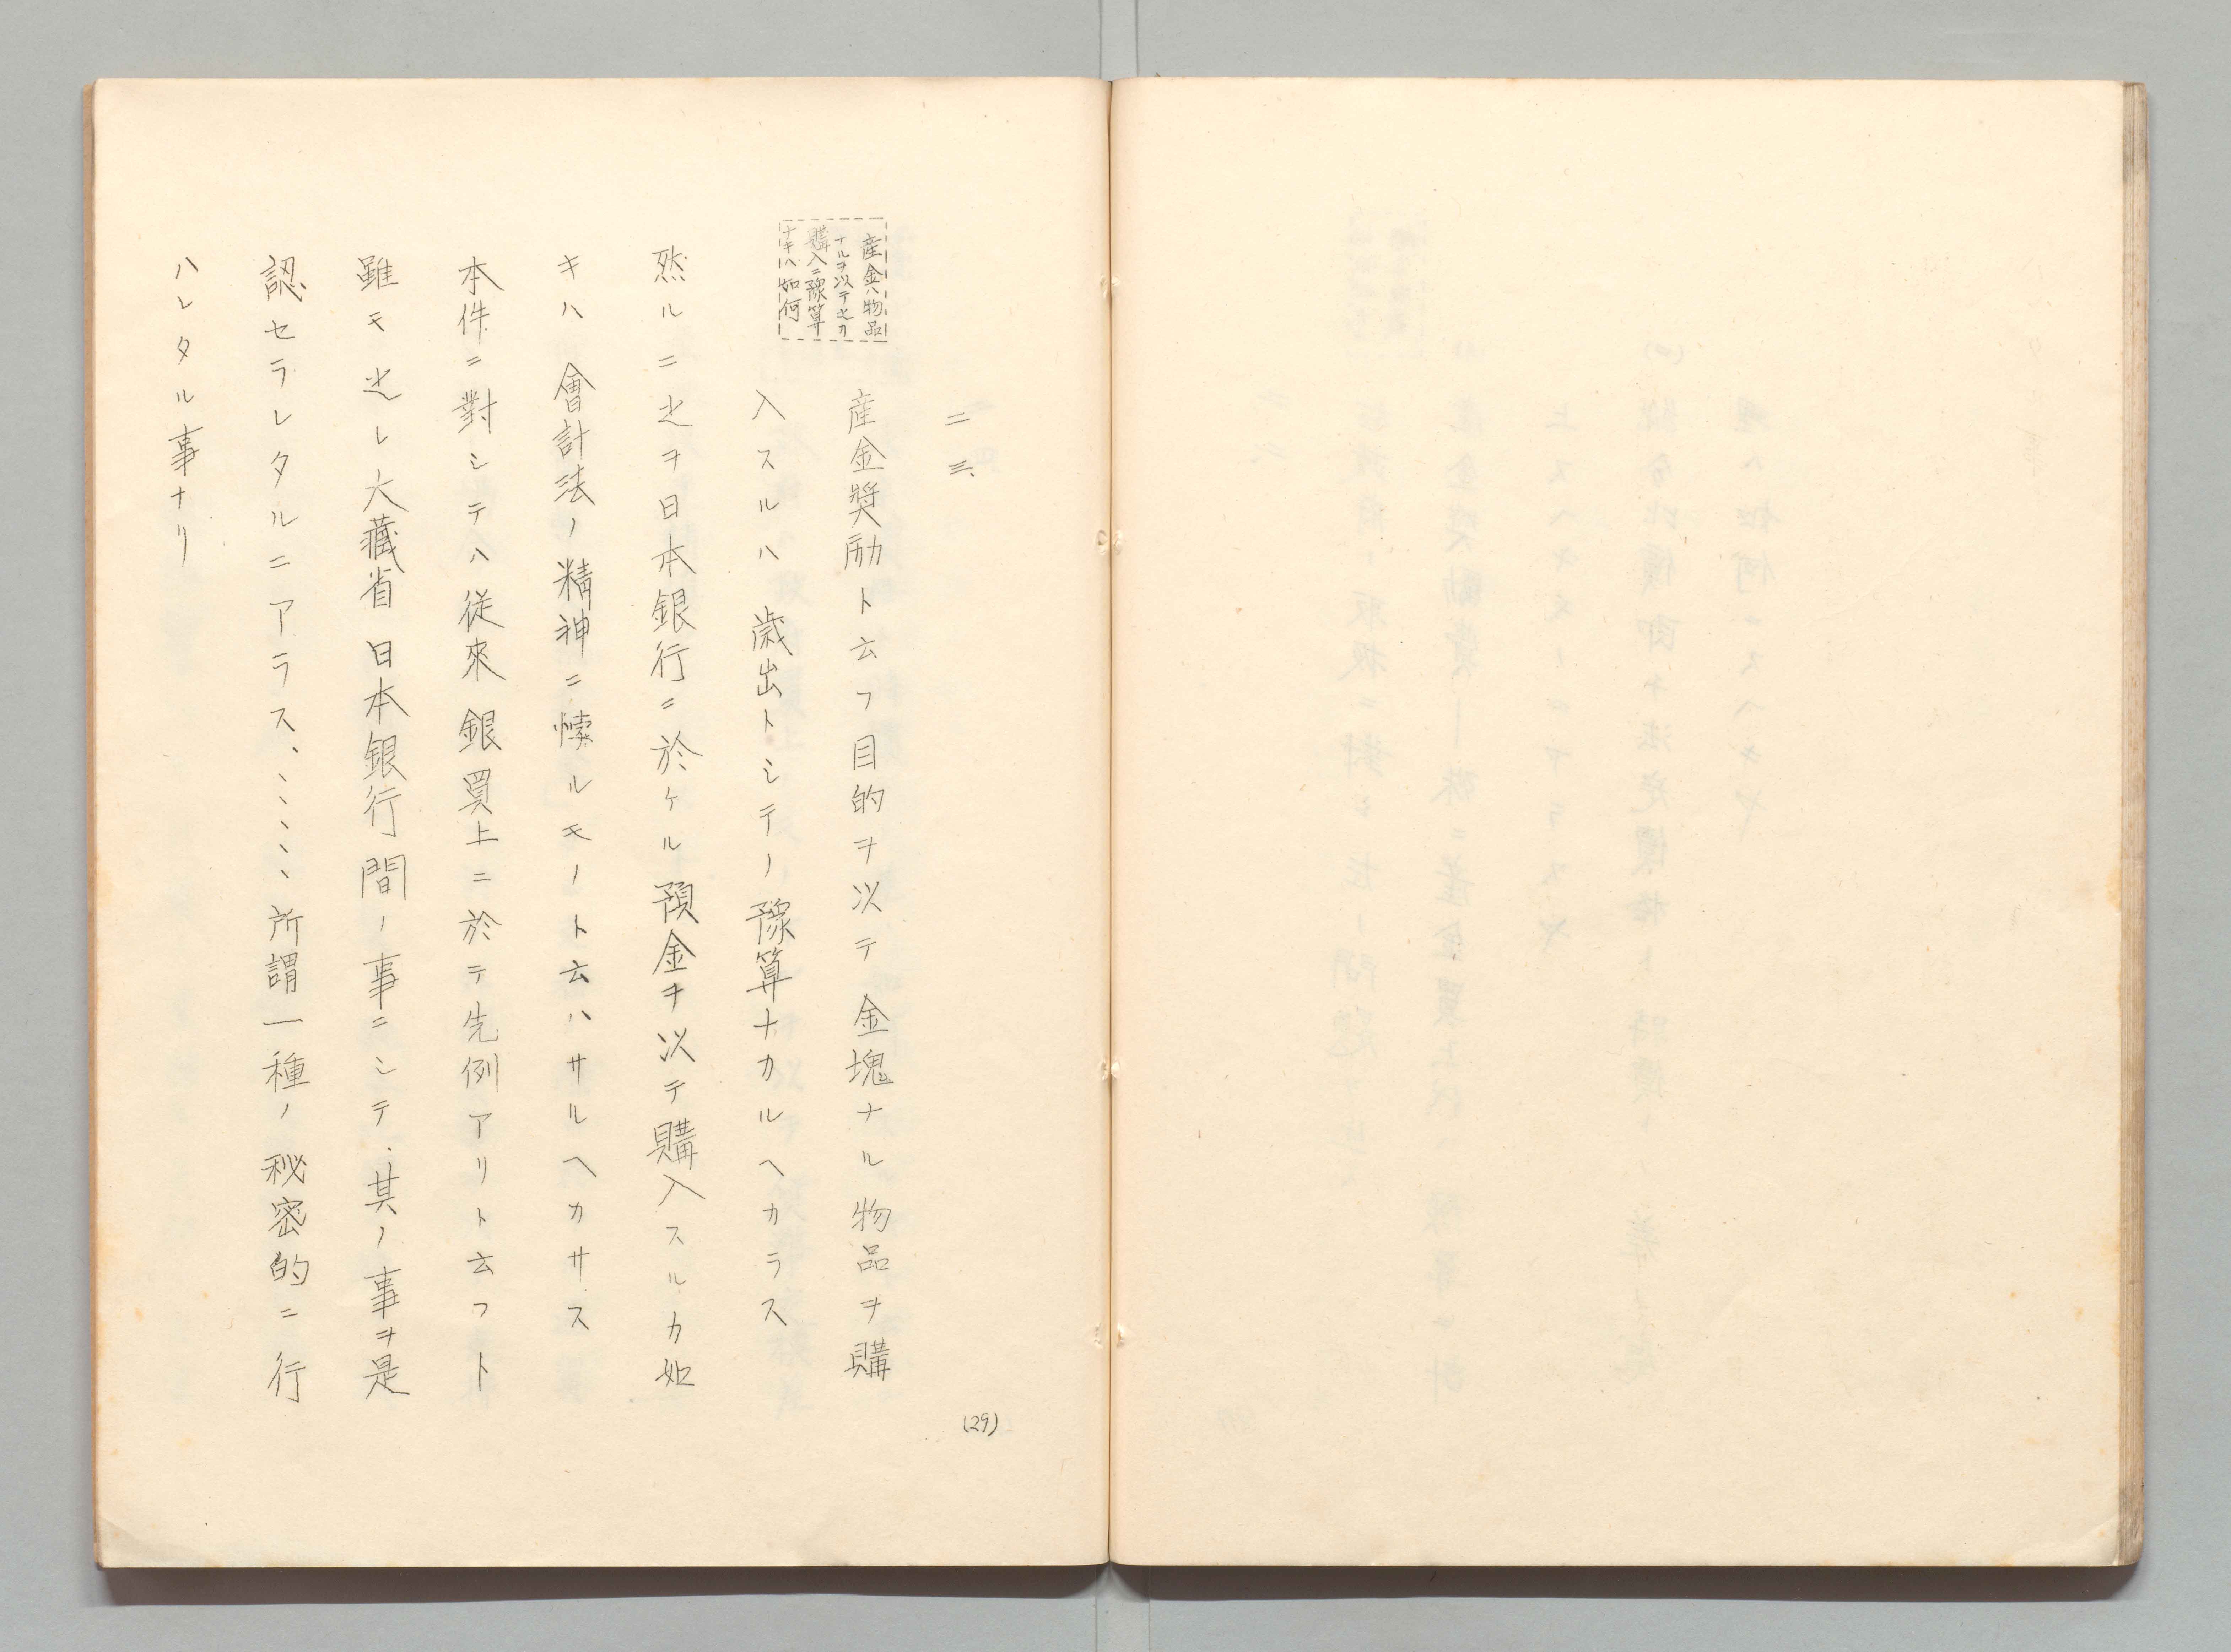 二三、
産金ハ物品
ナルヲ以テ之カ
購入ニ豫算
ナキハ如何
産金奬励ト云フ目的ヲ以テ金塊ナル物品ヲ購
入スルハ歳出トシテノ豫算ナカルヘカラス
然ルニ之ヲ日本銀行ニ於ケル預金ヲ以テ購入スルカ如
キハ會計法ノ精神ニ悖ルモノト云ハサルヘカサス
本件ニ對シテハ從來銀買上ニ於テ先例アリト云フト
雖モ之レ大藏省日本銀行間ノ事ニシテ、其ノ事ヲ是
認セラレタルニアラス、、、、、、所謂一種ノ秘密的ニ行
ハレタル事ナリ
(29)